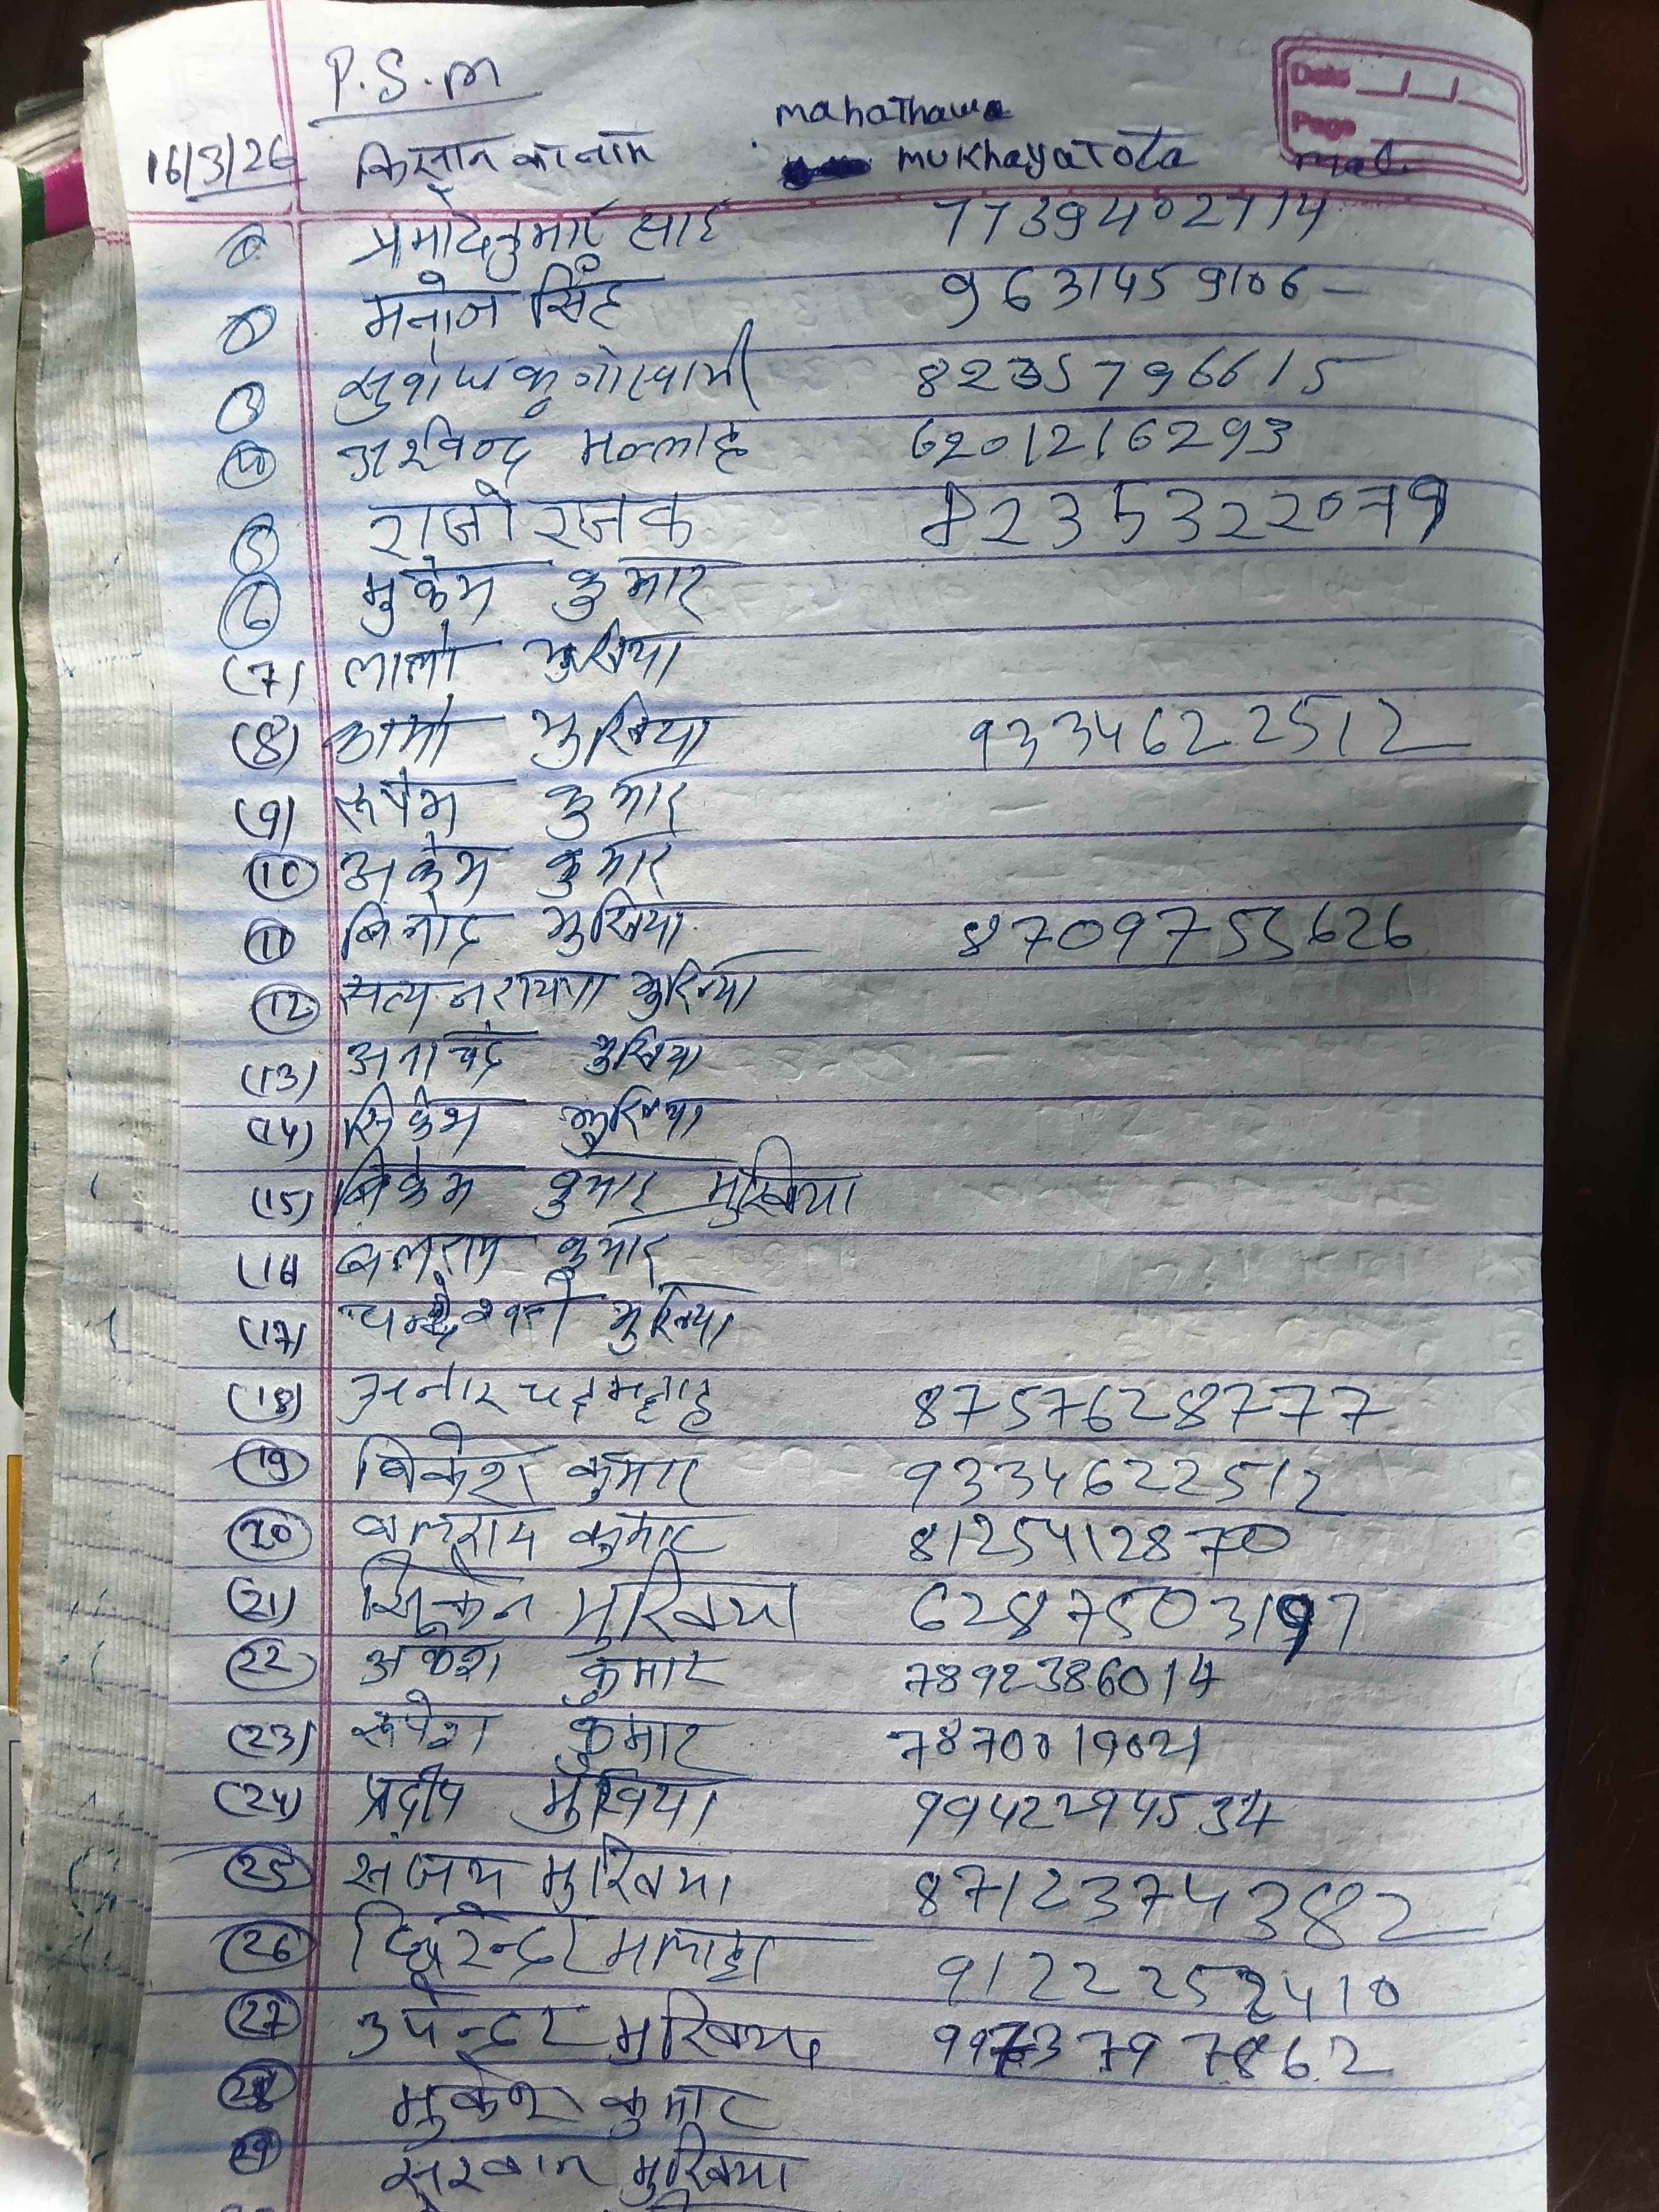 P.S.m
mahathawa
16/3/26 किसान का नाम mukhayatola mob.
Date
Page
प्रमोद कुमार साह 7739402714
मनोज सिंह 9631459106-
3 सुबोध कु गोस्वामी 8235796615
4 अरविन्द मल्लाह 6201216293
5 राजो रजक 8235322079
6 मुकेश कुमार
(7) लालो मुखिया
(8) कामो मुखिया 9334622512
(9) रूपेश कुमार
10 अकेश कुमार
11 बिनोद मुखिया 8709755626
12 सत्य नरायण मुखिया
(13) अनारचंद मुखिया
(14) सिकेश मुखिया
(15) बिकेश कुमार मुखिया
(16 बलराम कुमार
(17) चन्देश्वरी मुखिया
(18) अनार चद मल्लाह 8757628777
19 बिकेश कुमार 9334622512
20 बलराम कुमार 8125412870
(21) सिकेन मुखिया 6287503197
22 अकेश कुमार 7892386014
(23) रूपेश कुमार 7870019021
(24) प्रदीप मुखिया 9942294534
25 संजय मुखिया 8712374382
26 मलाहा 9122252410
27 उपेन्द्र मुखिया 9973797862
28 मुकेश कुमार
29 सरवान मुखिया